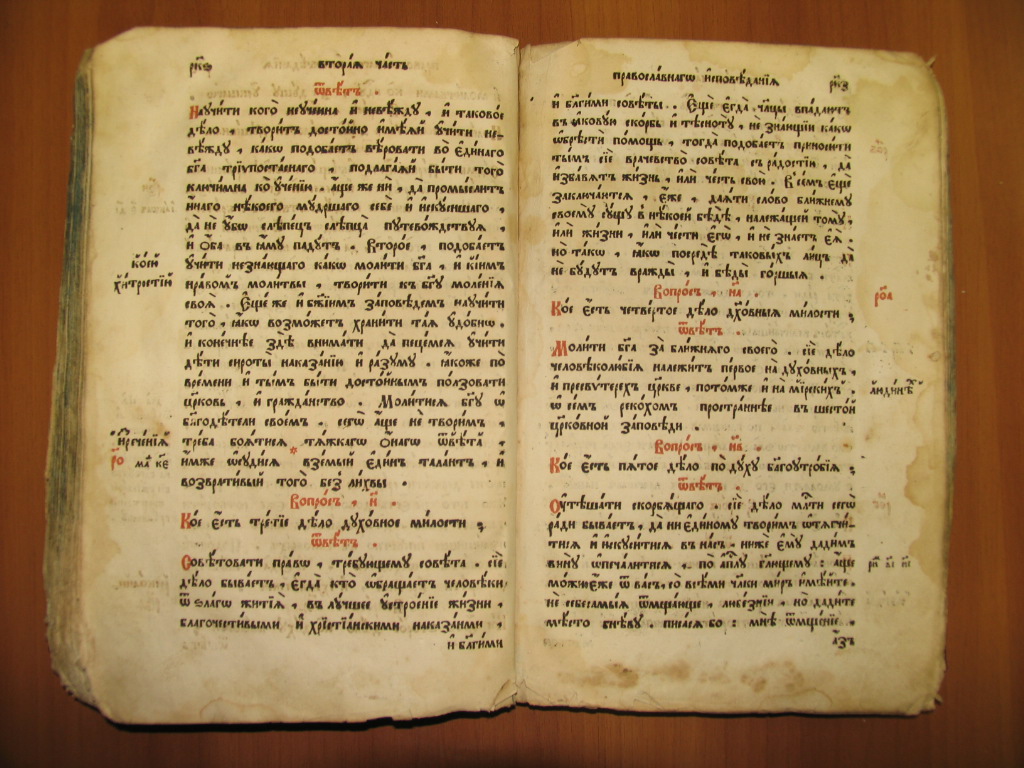 вторая́ ча́сть
ѿвѣ́тъ .
Научи́ти кого̀ неуче́нна и҆ невѣ́жду , и҆ таково́е
дѣ́ло , твори́тъ досто́йно и҆мѣ́ѧй ᲂу҆чи́ти не-
вѣ́жду , ка́кѡ подоба́етъ вѣ́ровати во є҆ди́наго
бг҃а трїѵпоста́снаго , подлага́ѧй бы́ти того̀
ключи́мна ко ᲂу҆че́нїю . а҆́ще же нѝ , да промы́слитъ
и҆на́го нѣ́коего мꙋдрѣ́йшаго себє̀ и҆ и҆скꙋ́снѣйшаго ,
да не ᲂу҆́бѡ слѣпе́цъ слѣпца̀ пꙋтево́ждствꙋѧ ,
и҆ ѻ҆́ба въ ꙗ҆́мꙋ падꙋ́тъ . Второ́е , подоба́етъ
ᲂу҆чи́ти незна́ющаго ка́кѡ моли́ти бг҃а , и҆ кі́имъ
нра́вомъ моли́твы , твори́ти къ бг҃ꙋ моле́нїѧ
своѧ̀ . Є҆ще́ же и҆ бж҃їимъ за́повѣдемъ наꙋчи́ти
того̀ , ꙗ҆́кѡ возмо́жетъ храни́ти та́ѧ ᲂу҆до́бнѡ .
и҆ коне́чнѣе здѣ̀ внима́ти да пеце́мсѧ ᲂу҆чи́ти
дѣ́ти си́роты наказа́нїю и҆ ра́зꙋмꙋ . ꙗ҆́коже по
вре́мени и҆ ты́мъ бы́ти досто́йнымъ по́лзовати
цр҃ковь , и҆ гражда́нство . Моли́тисѧ бг҃ꙋ ѡ҆
бл҃годѣ́тели свое́мъ . сегѡ̀ а҆́ще не твори́мъ ,
тре́ба боѧ́тисѧ тѧ́жкагѡ ѻ҆́нагѡ ѿвѣ́та ,
и҆́мже ѡ҆сꙋди́сѧ * взе́мый є҆ди́нъ тала́нтъ , и҆
возврати́вый того̀ без̾ ли́хвы .
Вопро́съ , к҃ .
Ко́е є҆́сть тре́тїе дѣ́ло дꙋхо́вное ми́лости ;
ѿвѣ́тъ .
Совѣ́товати пра́вѡ , тре́бꙋющемꙋ совѣ́та . сїѐ
дѣ́ло быва́етъ , є҆гда̀ кто̀ ѡ҆браща́етъ человѣ́ки
ѿ ѕла́гѡ житїѧ̀ , въ лꙋ́чшее ᲂу҆строе́нїе жи́зни ,
благочести́выми и҆ хрїстїа́нскими наказа́нми ,
и҆ бл҃ги́ми
ко́ей
хи́трости
православнагѡ и҆сповѣ́данїѧ
и҆ бл҃ги́ми совѣ́ты . Є҆щѐ є҆гда̀ ча́ѧцы впада́ютъ
въ ꙗ҆кову́ю ско́рбь и҆ тѣснотꙋ̀ , не зна́ющїи ка́кѡ
ѡ҆брѣстѝ по́мощь , тогда̀ подоба́етъ приноси́ти
ты́мъ сїѐ врачевство̀ совѣ́та съ ра́достїю , да
и҆зба́вѧтъ жи́знь , и҆лѝ че́сть свою̀ . В се́мъ є҆щѐ
заключа́етсѧ , є҆́же , даѧ́ти сло́во бли́жнемꙋ
своемꙋ̀ сꙋ́щꙋ в нѣ́коей бѣдѣ̀ , належа́щей томꙋ̀ ,
и҆лѝ жи́зни , и҆лѝ че́сти є҆гѡ̀ , и҆ не зна́етъ є҆ѧ̀ .
но та́кѡ , ꙗ҆́кѡ посредѣ̀ таковы́хъ ли́цъ да
не бꙋ́дꙋтъ вражды̀ , и҆ бѣды̀ го́ршыѧ .
Вопро́съ , к҃а .
Ко́е є҆́сть четве́ртое дѣ́ло дх҃о́вныѧ ми́лости ;
ѿвѣ́тъ .
Моли́ти бг҃а за бли́жнѧго своего̀ . сїѐ дѣ́ло
человѣколю́бїѧ належи́тъ пе́рвое на дꙋхо́вныхъ ,
и҆ пресвѵ́терехъ цр҃кве , пото́мже и҆ на мїрски́хъ .
ѡ҆ се́мъ реко́хомъ простра́ннѣе въ шесто́й
цр҃ко́вной за́повѣди .
Вопро́съ , к҃в .
Ко́е є҆́сть пѧ́тое дѣ́ло по дꙋ́хꙋ бл҃гоꙋтро́бїѧ ;
ѿвѣ́тъ .
Оу҆тѣша́ти скорбѧ́щаго . сїѐ дѣ́ло мл҃ти сегѡ̀
ра́ди быва́етъ , да ни є҆ди́номꙋ твори́мъ ѡ҆тѧгчи́-
тисѧ и҆ и҆скꙋси́тисѧ въ на́съ . ниже́ є҆мꙋ̀ дади́мъ
винꙋ̀ ѡ҆печа́литисѧ , по а҆п҃лꙋ гл҃ющемꙋ : а҆́ще
мо́жно є҆́же ѿ ва́съ , со всѣ́ми чл҃ки ми́ръ и҆мѣ́йте .
не себе́ самы́ѧ ѿмща́юще , любе́знїи , но дади́те
мѣ́сто гнѣ́вꙋ . пи́сасѧ бо : мнѣ̀ ѿмще́нїе ,
а҆́зъ